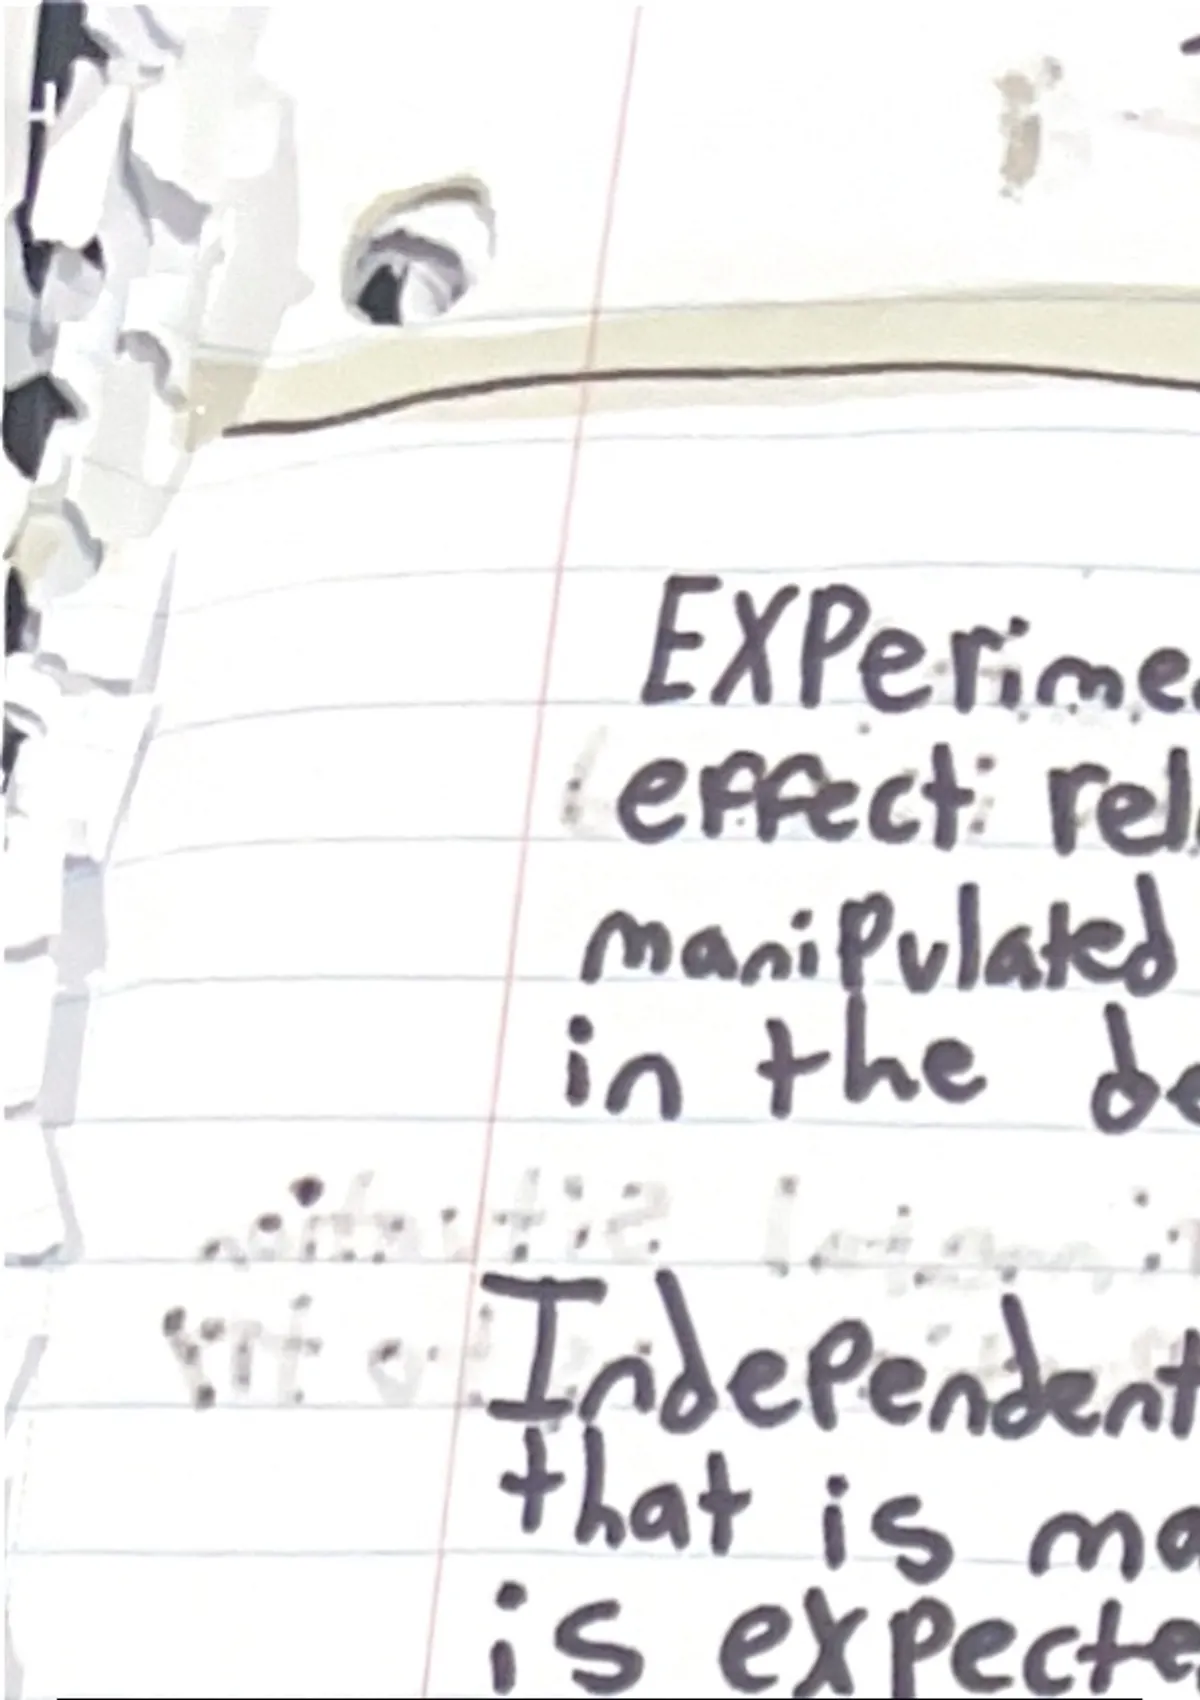 EXPerime
effect rel
manipulated
in the de
Independent
that is ma
is expecte